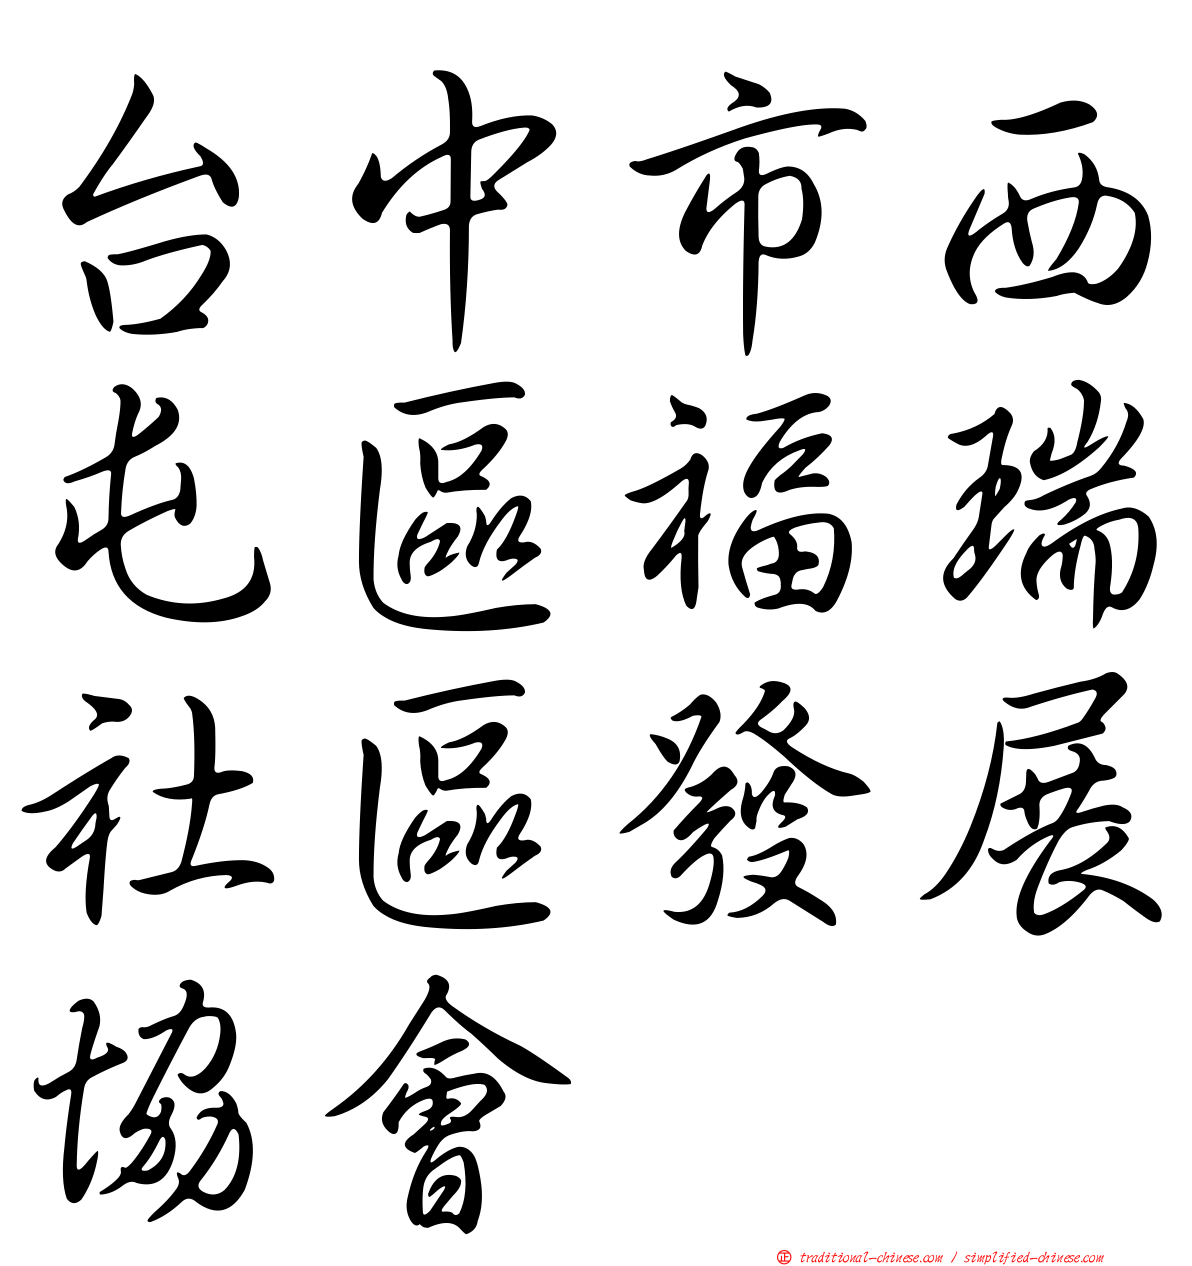 台中市西
屯區福瑞
社區發展
協會
正 traditional-chinese.com / simplified-chinese.com